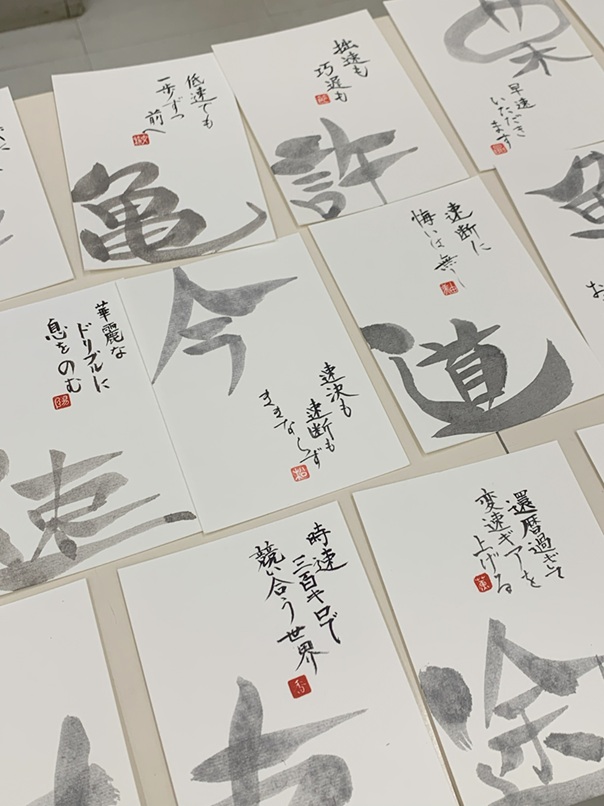 低速でも
一歩ずつ
前へ
亀
拙速も
巧遅も
許
早速
いただき
ます
速断に
悔いは無し
道
華麗な
ドリブルに
息をのむ
速
今
速決も
速断も
ままならず
時速
三百キロで
競い合う世界
還暦過ぎて
変速ギアを
上げる
途
お